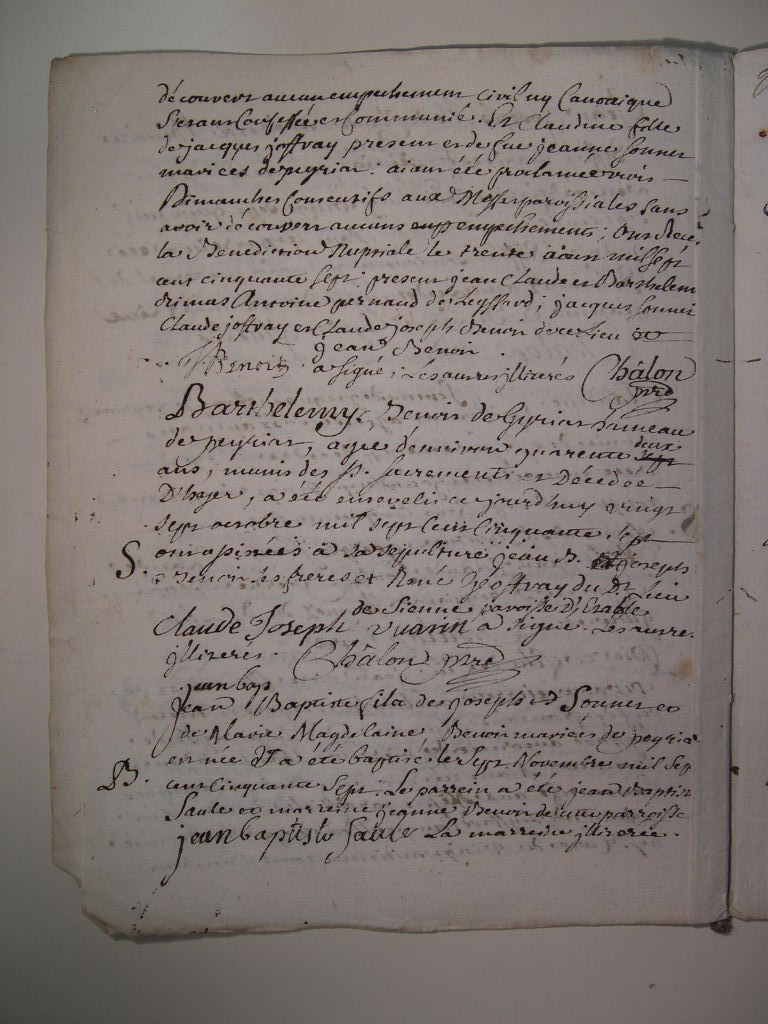 découvert aucun empechement civil ny Canonique
S'etant Confessé et Communié. Et Claudine fille
de jacques joffray present et de fue jeanne Sonner
mariees de peyriat: aiant été proclamée trois
Dimanches Consecutifs aux Messes paroissiales Sans
avoir découvert aucuns empechements; Ont Recu
la Benediction Nuptiale le trente aout mil Sept
cent cinquante Sept: present jean Claude et Barthelem
Antoine pernaud de Leyssard; jacques Sonner
Claude joffray et Claude joseph Benoit de ce Lieu
jean Benoit
JBenoit a Signé, Les autres illiterés Châlon
ptre
Barthelemy Benoit de Gyriat hameau
de peyriat, agé d'environ quarente deux
ans, munis des SS. Sacrements et Décédée
D'hyer, a été ensevelis ce jourd'huy vingt
sept octobre mil sept Cent Cinquante sept
S. ont assistées a sa Sepulture jean B. joseph
Benoit Ses freres et René Joffray du Dt lieu
de Sienne paroisse D'
Claude Joseph vuarin a Signé. Les autres
illiterés. Châlon ptre
jean bap
Jean Baptiste fils de joseph Sonner et
de Marie Magdelaine Benoit mariées de peyriat
B. et née a été baptisé le Sept Novembre mil Sep
cent Cinquante Sept. Le parrein a été jean Baptis
Saule et marreine jeanne Benoit de cette parroisse
jean baptiste Saule La marreine illiterée.